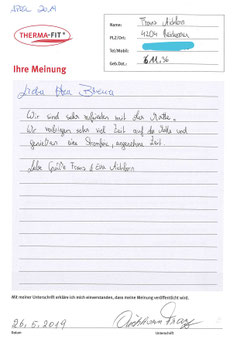 2019
THERMA-FIT®
Ihre Meinung
Name:
Franz
PLZ/Ort:
4204
Tel/Mobil:
Geb.Dat.:
6.11.36
Wir sind sehr zufrieden mit der Matte.
Wir verbringen sehr viel Zeit auf der Matte und
genießen eine angenehme Zeit.
Liebe Grüße Franz & Eva
Mit meiner Unterschrift erkläre ich mich einverstanden, dass meine Meinung veröffentlicht wird.
26.5.2019
Franz
Datum
Unterschrift